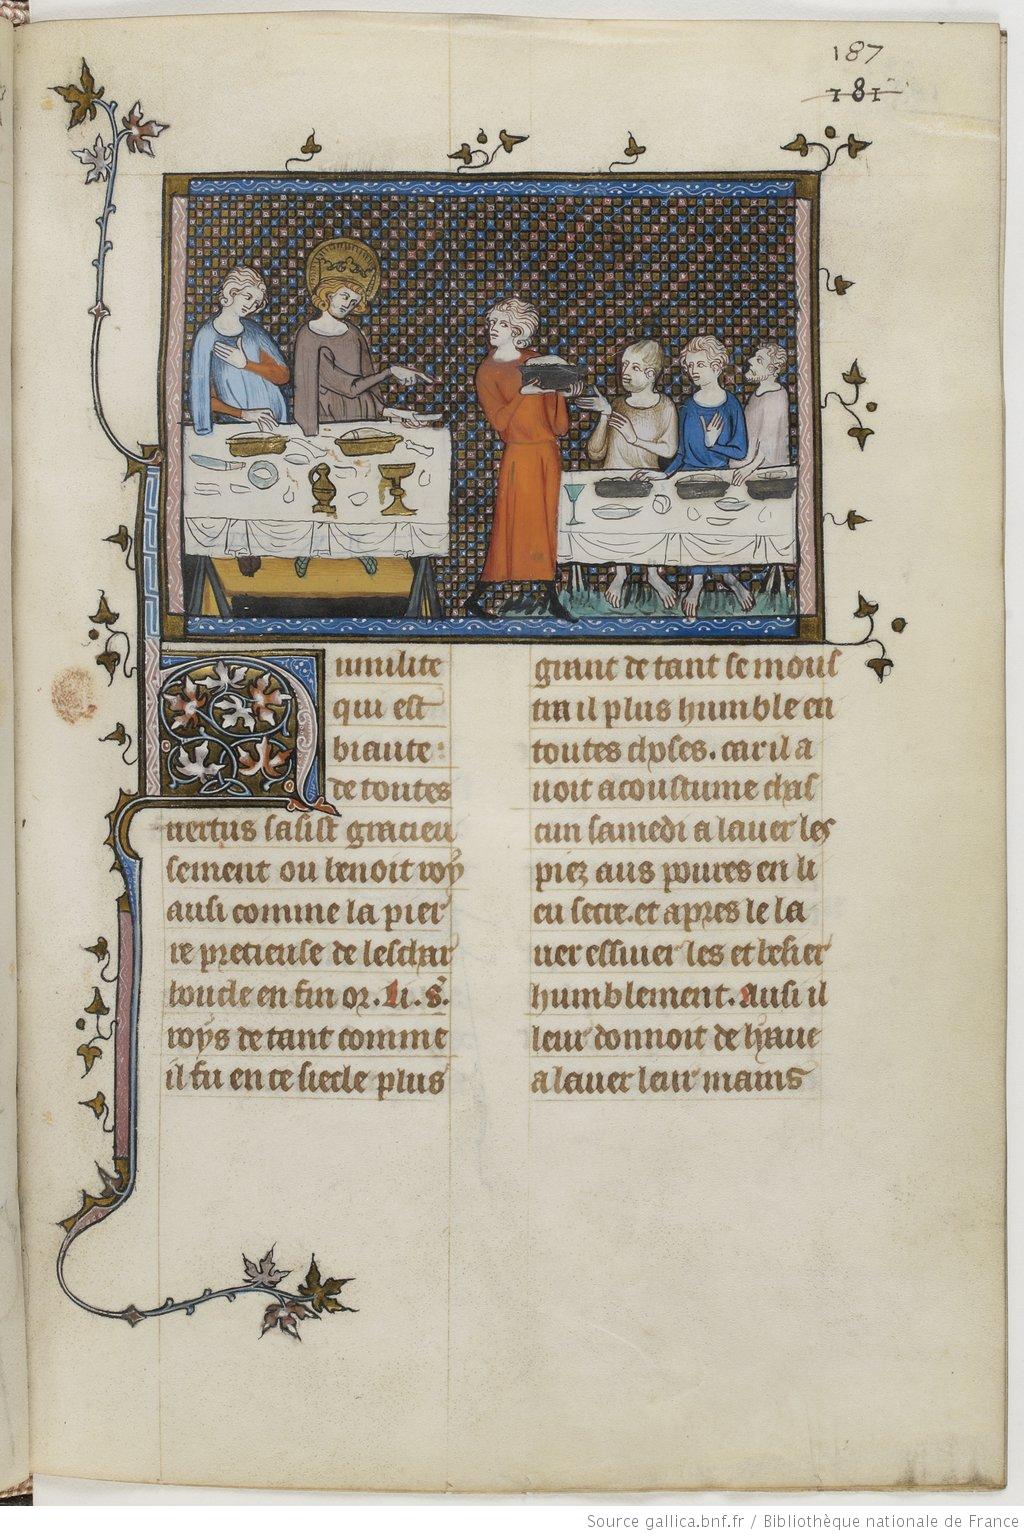 187
181
Humilite
qui est
biaute
de toutes
vertus sasist gracieu
sement ou benoit roy
ausi comme la pier
re precieuse de leschar
boucle en fin or. Li. s.
roys de tant comme
il fu en ce siecle plus
grant de tant se mous
tra il plus humble en
toutes choses. car il a
voit acoustume chas
cun samedi a laver les
piez aus povres en li
eu secre. et apres le la
ver essuier les et besier
humblement. Ausi il
leur donnoit de lyaue
a laver leur mains
Source gallica.bnf.fr / Bibliothèque nationale de France